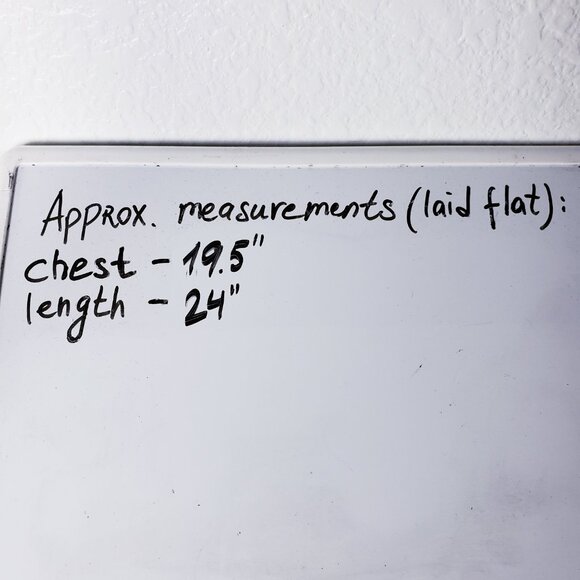 Approx. measurements (laid flat):
chest - 19.5"
length - 24"